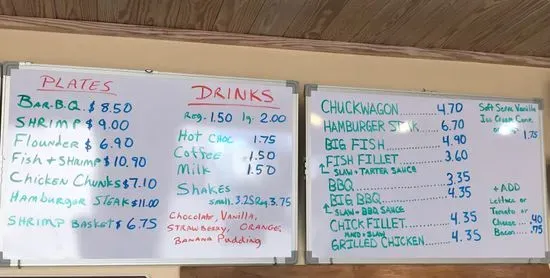 PLATES
BAR-B.Q. $ 8.50
SHRIMP $ 9.00
Flounder $ 6.90
Fish + SHRIMP $ 10.90
CHICKEN CHUNKS $7.10
HAMBURGER STEAK $11.00
SHRIMP BASKET $ 6.75
DRINKS
Reg. 1.50 lg. 2.00
Hot CHOC 1.75
Coffee 1.50
Milk 1.50
SHAKES
small. 3.25 Reg. 3.75
Chocolate, Vanilla,
STRAWBERRY, ORANGE,
BANANA Pudding
CHUCKWAGON.........4.70
HAMBURGER STEAK......6.70
BIG FISH...............4.90
FISH FILLET...........3.60
SLAW + TARTER SAUCE
BBQ...................3.35
BIG BBQ...............4.35
SLAW + BBQ SAUCE
CHICK FILLET.........4.35
MAYO + SLAW
GRILLED CHICKEN......4.35
Soft Serve Vanilla
Ice Cream Cone
1.75
+ ADD
Lettuce or
Tomato or
Cheese .40
Bacon .75